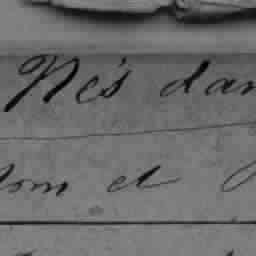 Nés dan
Nom et